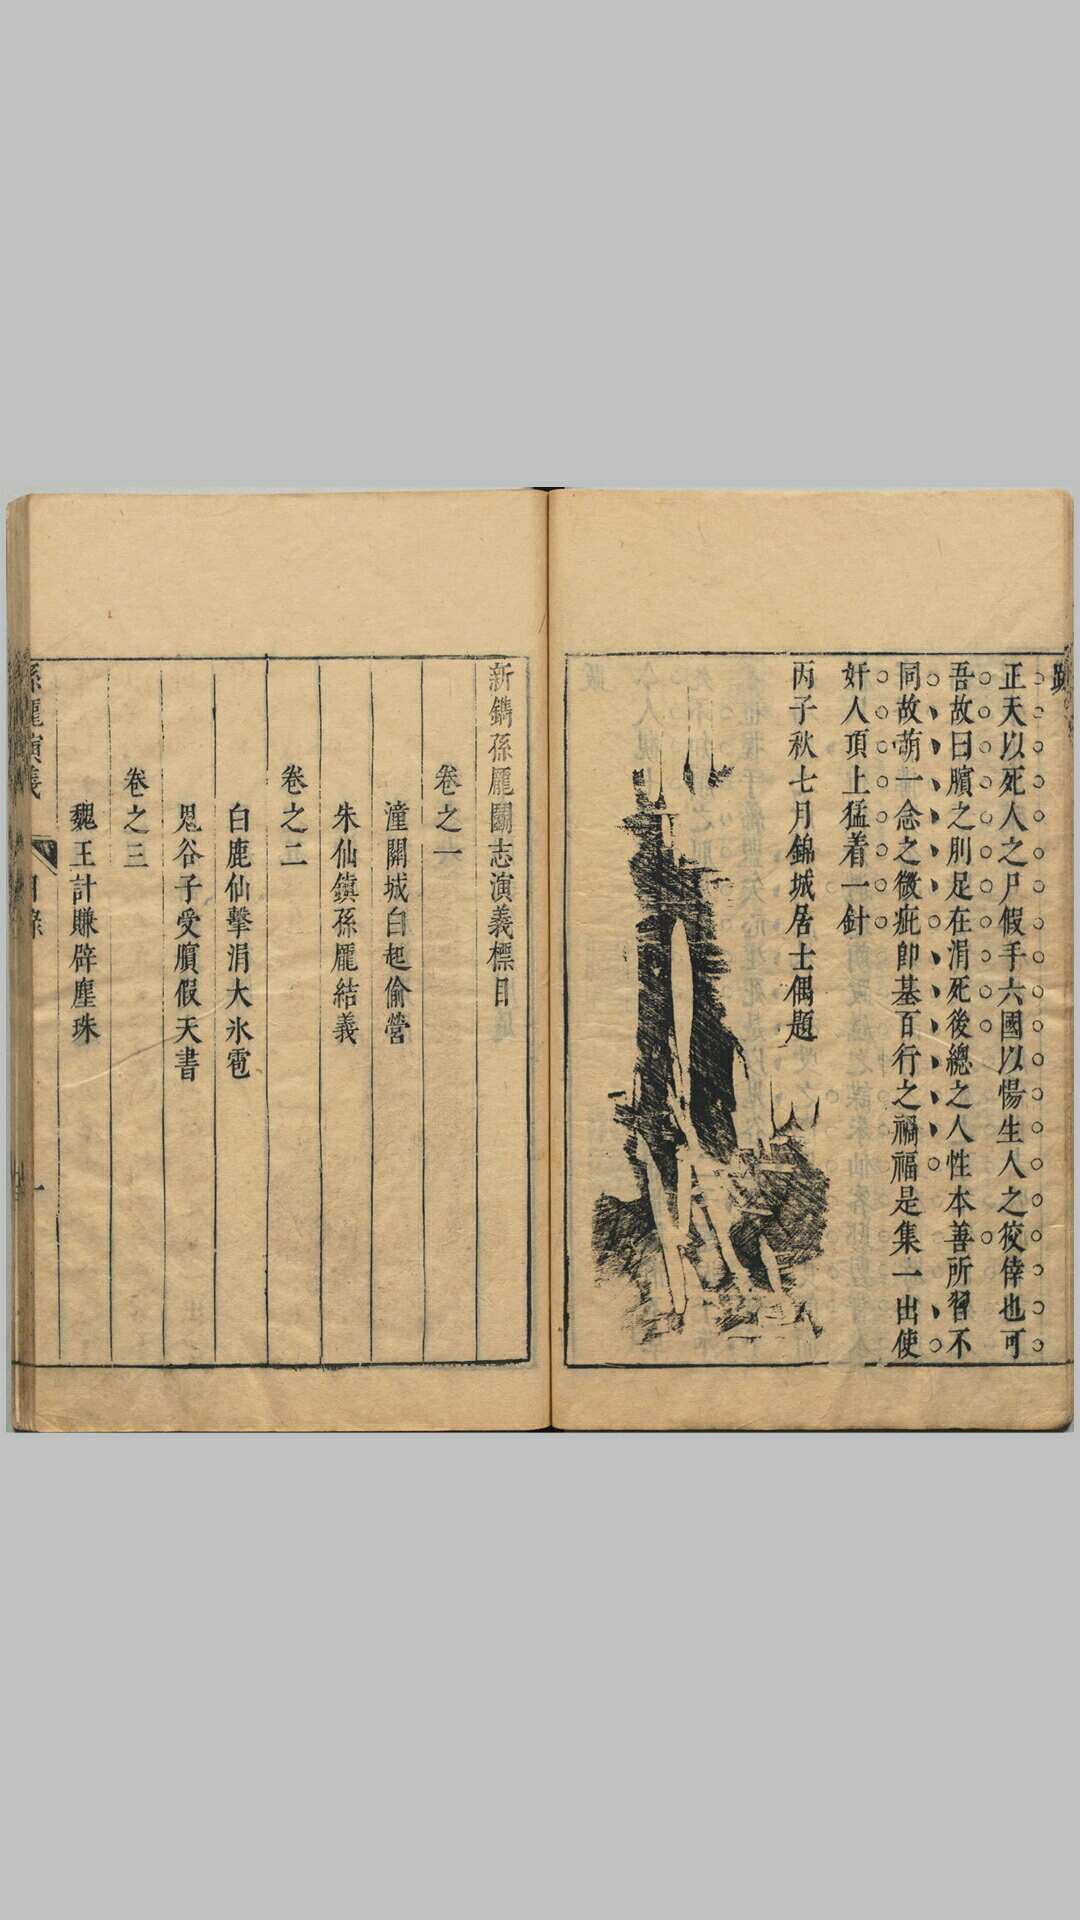 跋
正天以死人之尸假手六國以惕生人之狡倖也可
吾故曰臏之刖足在涓死後總之人性本善所習不
同故萌一念之微疵卽基百行之禍福是集一出使
奸人頂上猛着一針
丙子秋七月錦城居士偶題
新鐫孫龐鬬志演義標目
卷之一
潼關城白起偷營
朱仙鎮孫龐結義
卷之二
白鹿仙擊涓大氷雹
鬼谷子受臏假天書
卷之三
魏王計賺辟塵珠
孫龐演義
目錄
一